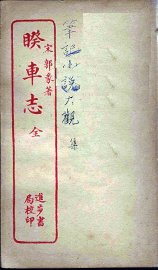 宋 郭彖著
睽車志 全
進步書
局校印
筆記小説大觀 集